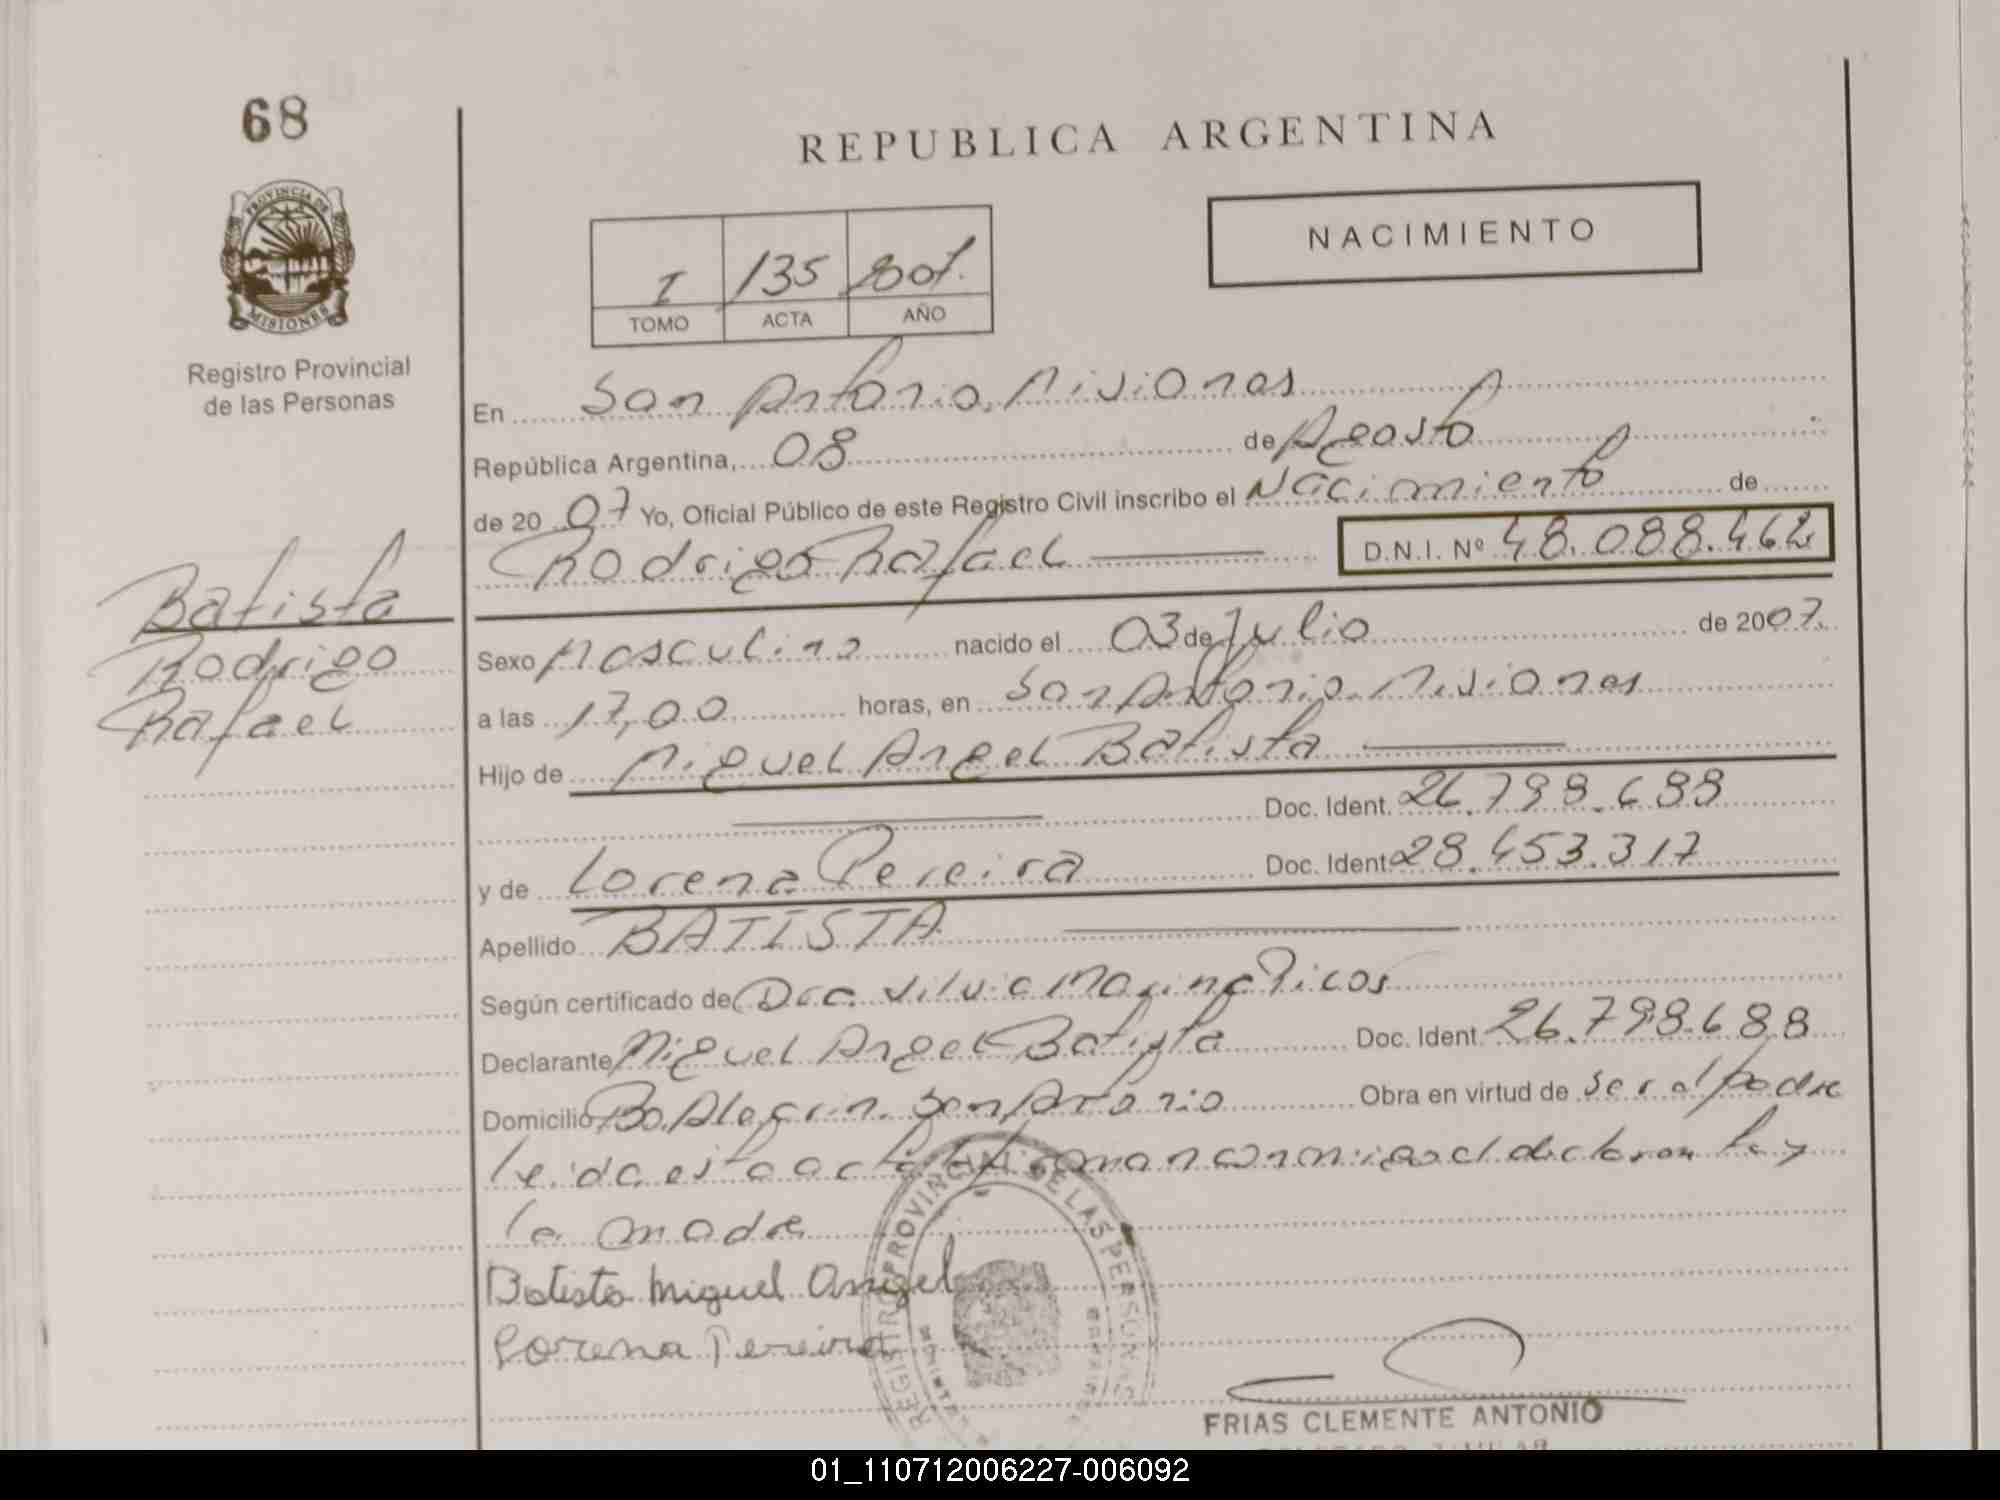 68
REPUBLICA ARGENTINA
PROVINCIA DE
MISIONES
Registro Provincial
de las Personas
NACIMIENTO
I 135 2007.
TOMO ACTA AÑO
En San Antonio, Misiones
República Argentina, 08 de Agosto
de 20 07 Yo, Oficial Público de este Registro Civil inscribo el Nacimiento de
Rodrigo Rafael D.N.I. Nº 48.088.462
Batista
Rodrigo
Rafael
Sexo Masculino nacido el 03 de Julio de 2007.
a las 17,00 horas, en San Antonio. Misiones
Hijo de Miguel Angel Batista
Doc. Ident. 26.798.688
y de Lorena Pereira Doc. Ident. 28.453.317
Apellido BATISTA
Según certificado de Dra. Silvia Marina Picos
Declarante Miguel Angel Batista Doc. Ident. 26.798.688
Domicilio Bo. Alegria. San Antonio Obra en virtud de ser el padre
leida esta acta firman conmigo el declarante y
la madre
Batista Miguel Angel
Lorena Pereira
REGISTRO PROVINCIAL DE LAS PERSONAS
FRIAS CLEMENTE ANTONIO
01_110712006227-006092